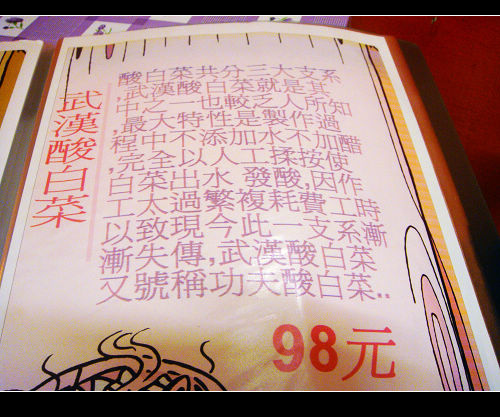 武漢酸白菜
酸白菜共分三大支系
,武漢酸白菜就是其
中之一也較乏人所知
,最大特性是製作過
程中不添加水不加醋
,完全以人工揉按使
白菜出水 發酸,因作
工太過繁複耗費工時
以致現今此一支系漸
漸失傳,武漢酸白菜
又號稱功夫酸白菜..
98元